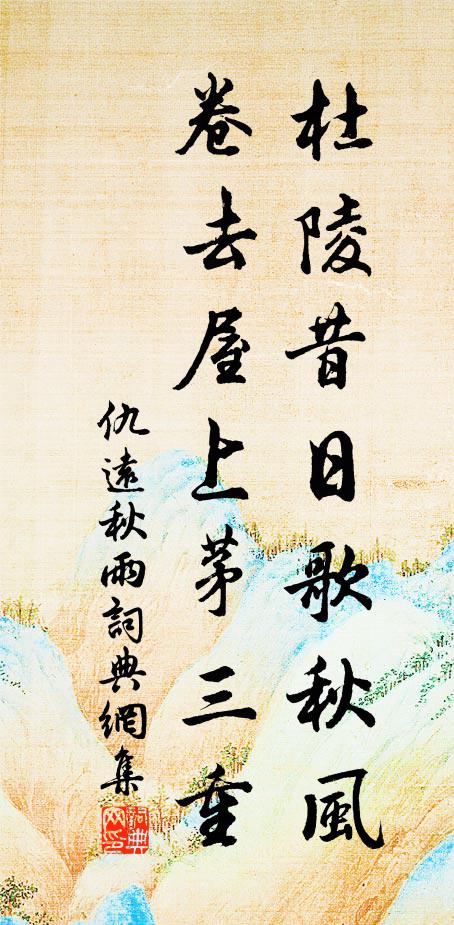 杜陵昔日歌秋風
卷去屋上茅三重
仇遠秋雨詞典網集
詞典